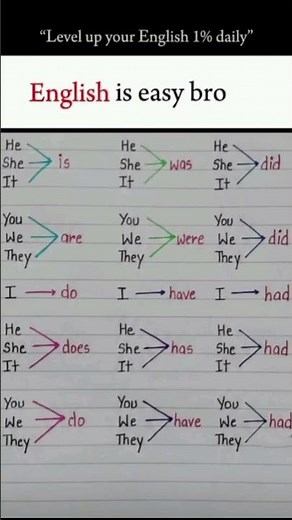 “Level up your English 1% daily”
English is easy bro
He
She is
It
He
She was
It
He
She did
It
You
We are
They
You
We were
They
You
We did
They
I do
I have
I had
He
She does
It
He
She has
It
He
She had
It
You
We do
They
You
We have
They
You
We had
They